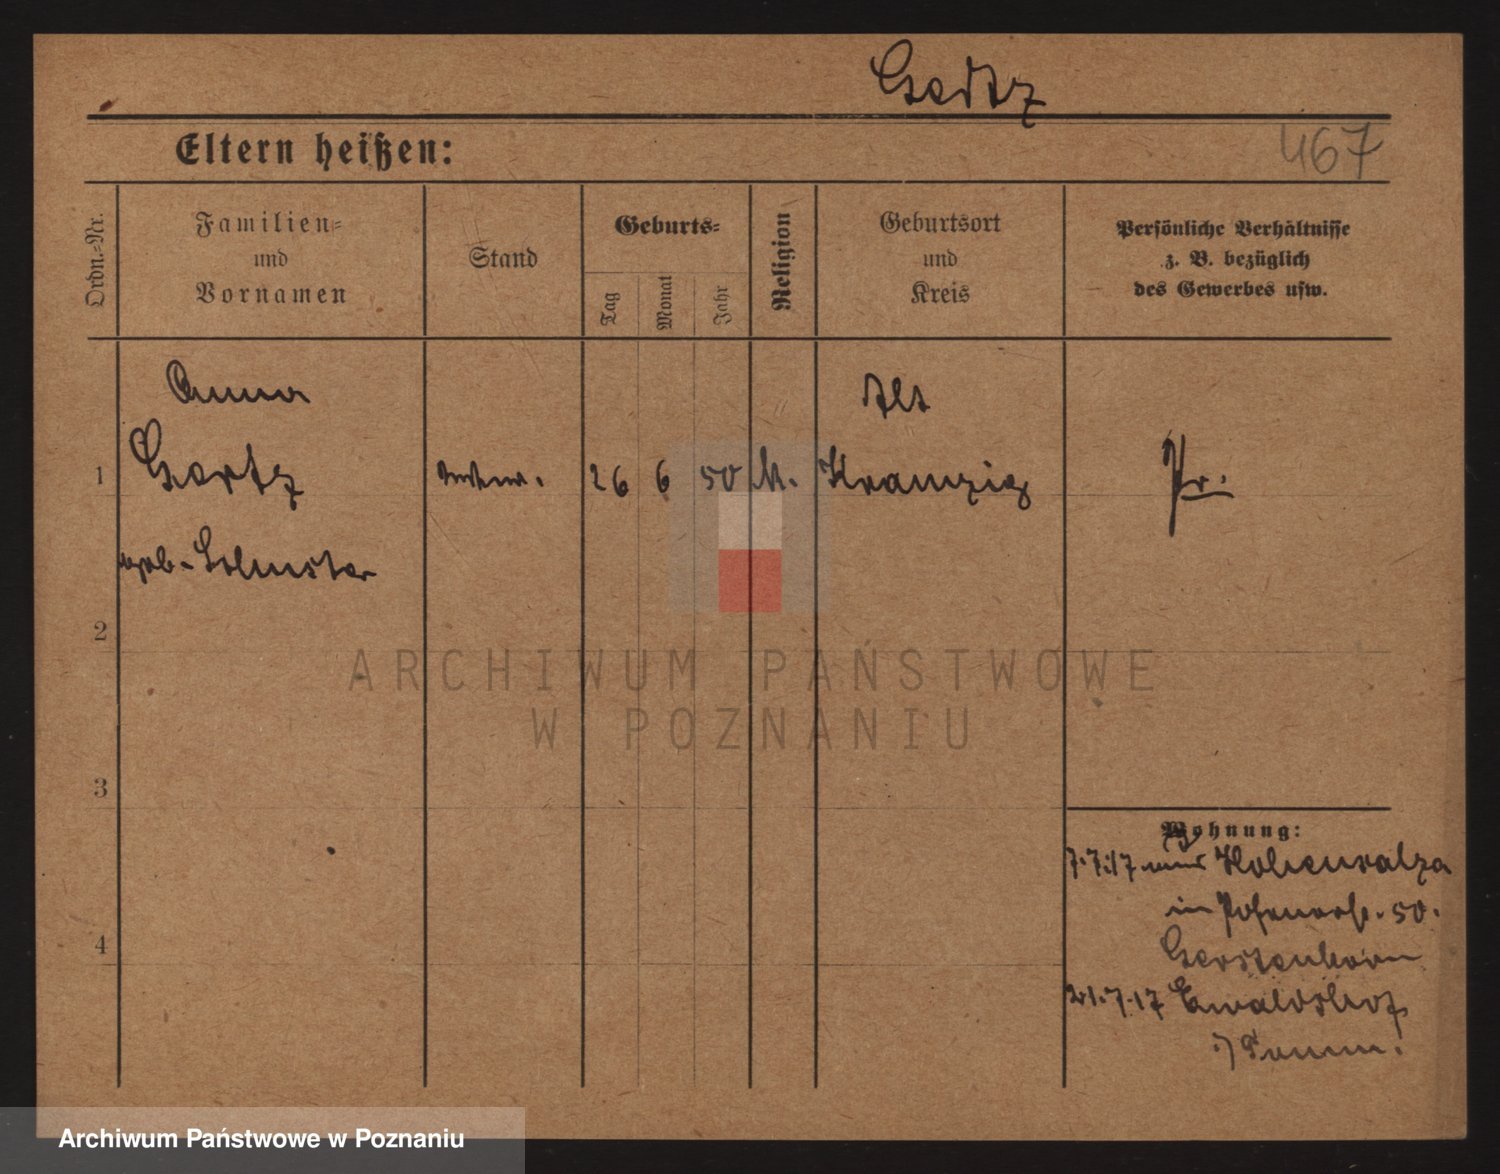 Gertz
Eltern heißen:
467
Ordn.-Nr.
Familien-
und
Vornamen
Stand
Geburts-
Tag
Monat
Jahr
Religion
Geburtsort
und
Kreis
Persönliche Verhältnisse
z. B. bezüglich
des Gewerbes usw.
Anna
Alt
1
Gertz
26 6 50
Kramzig
Pr.
geb.
2
3
4
Wohnung:
7.7.17 Hohensalza
in Posenerstr. 50.
Gerstenkorn
21.7.17 Ewaldshof
i/Pomm.
ARCHIWUM PAŃSTWOWE
W POZNANIU
Archiwum Państwowe w Poznaniu